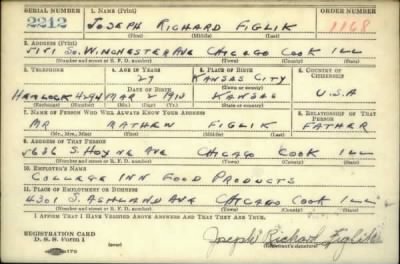 SERIAL NUMBER 1. NAME (Print) ORDER NUMBER
2212 JOSEPH RICHARD FIGLIK 1168
(First) (Middle) (Last)
2. ADDRESS (Print)
5151 SO. WINCHESTER AVE CHICAGO COOK ILL
(Number and street or R. F. D. number) (Town) (County) (State)
3. TELEPHONE 4. AGE IN YEARS 5. PLACE OF BIRTH 6. COUNTRY OF CITIZENSHIP
27 KANSAS CITY
DATE OF BIRTH (Town or county)
HEMLOCK 4294 MAR 2 1913 KANSAS U.S.A
(Exchange) (Number) (Mo.) (Day) (Yr.) (State or country)
7. NAME OF PERSON WHO WILL ALWAYS KNOW YOUR ADDRESS 8. RELATIONSHIP OF THAT PERSON
MR MATHEW FIGLIK FATHER
(Mr., Mrs., Miss) (First) (Middle) (Last)
9. ADDRESS OF THAT PERSON
5636 S. HOYNE AVE CHICAGO COOK ILL
(Number and street or R. F. D. number) (Town) (County) (State)
10. EMPLOYER'S NAME
COLLEGE INN FOOD PRODUCTS
11. PLACE OF EMPLOYMENT OR BUSINESS
4301 S. ASHLAND AVE CHICAGO COOK ILL
(Number and street or R. F. D. number) (Town) (County) (State)
I AFFIRM THAT I HAVE VERIFIED ABOVE ANSWERS AND THAT THEY ARE TRUE.
REGISTRATION CARD
D. S. S. Form 1
Joseph Richard Figlik
(Registrant's signature)